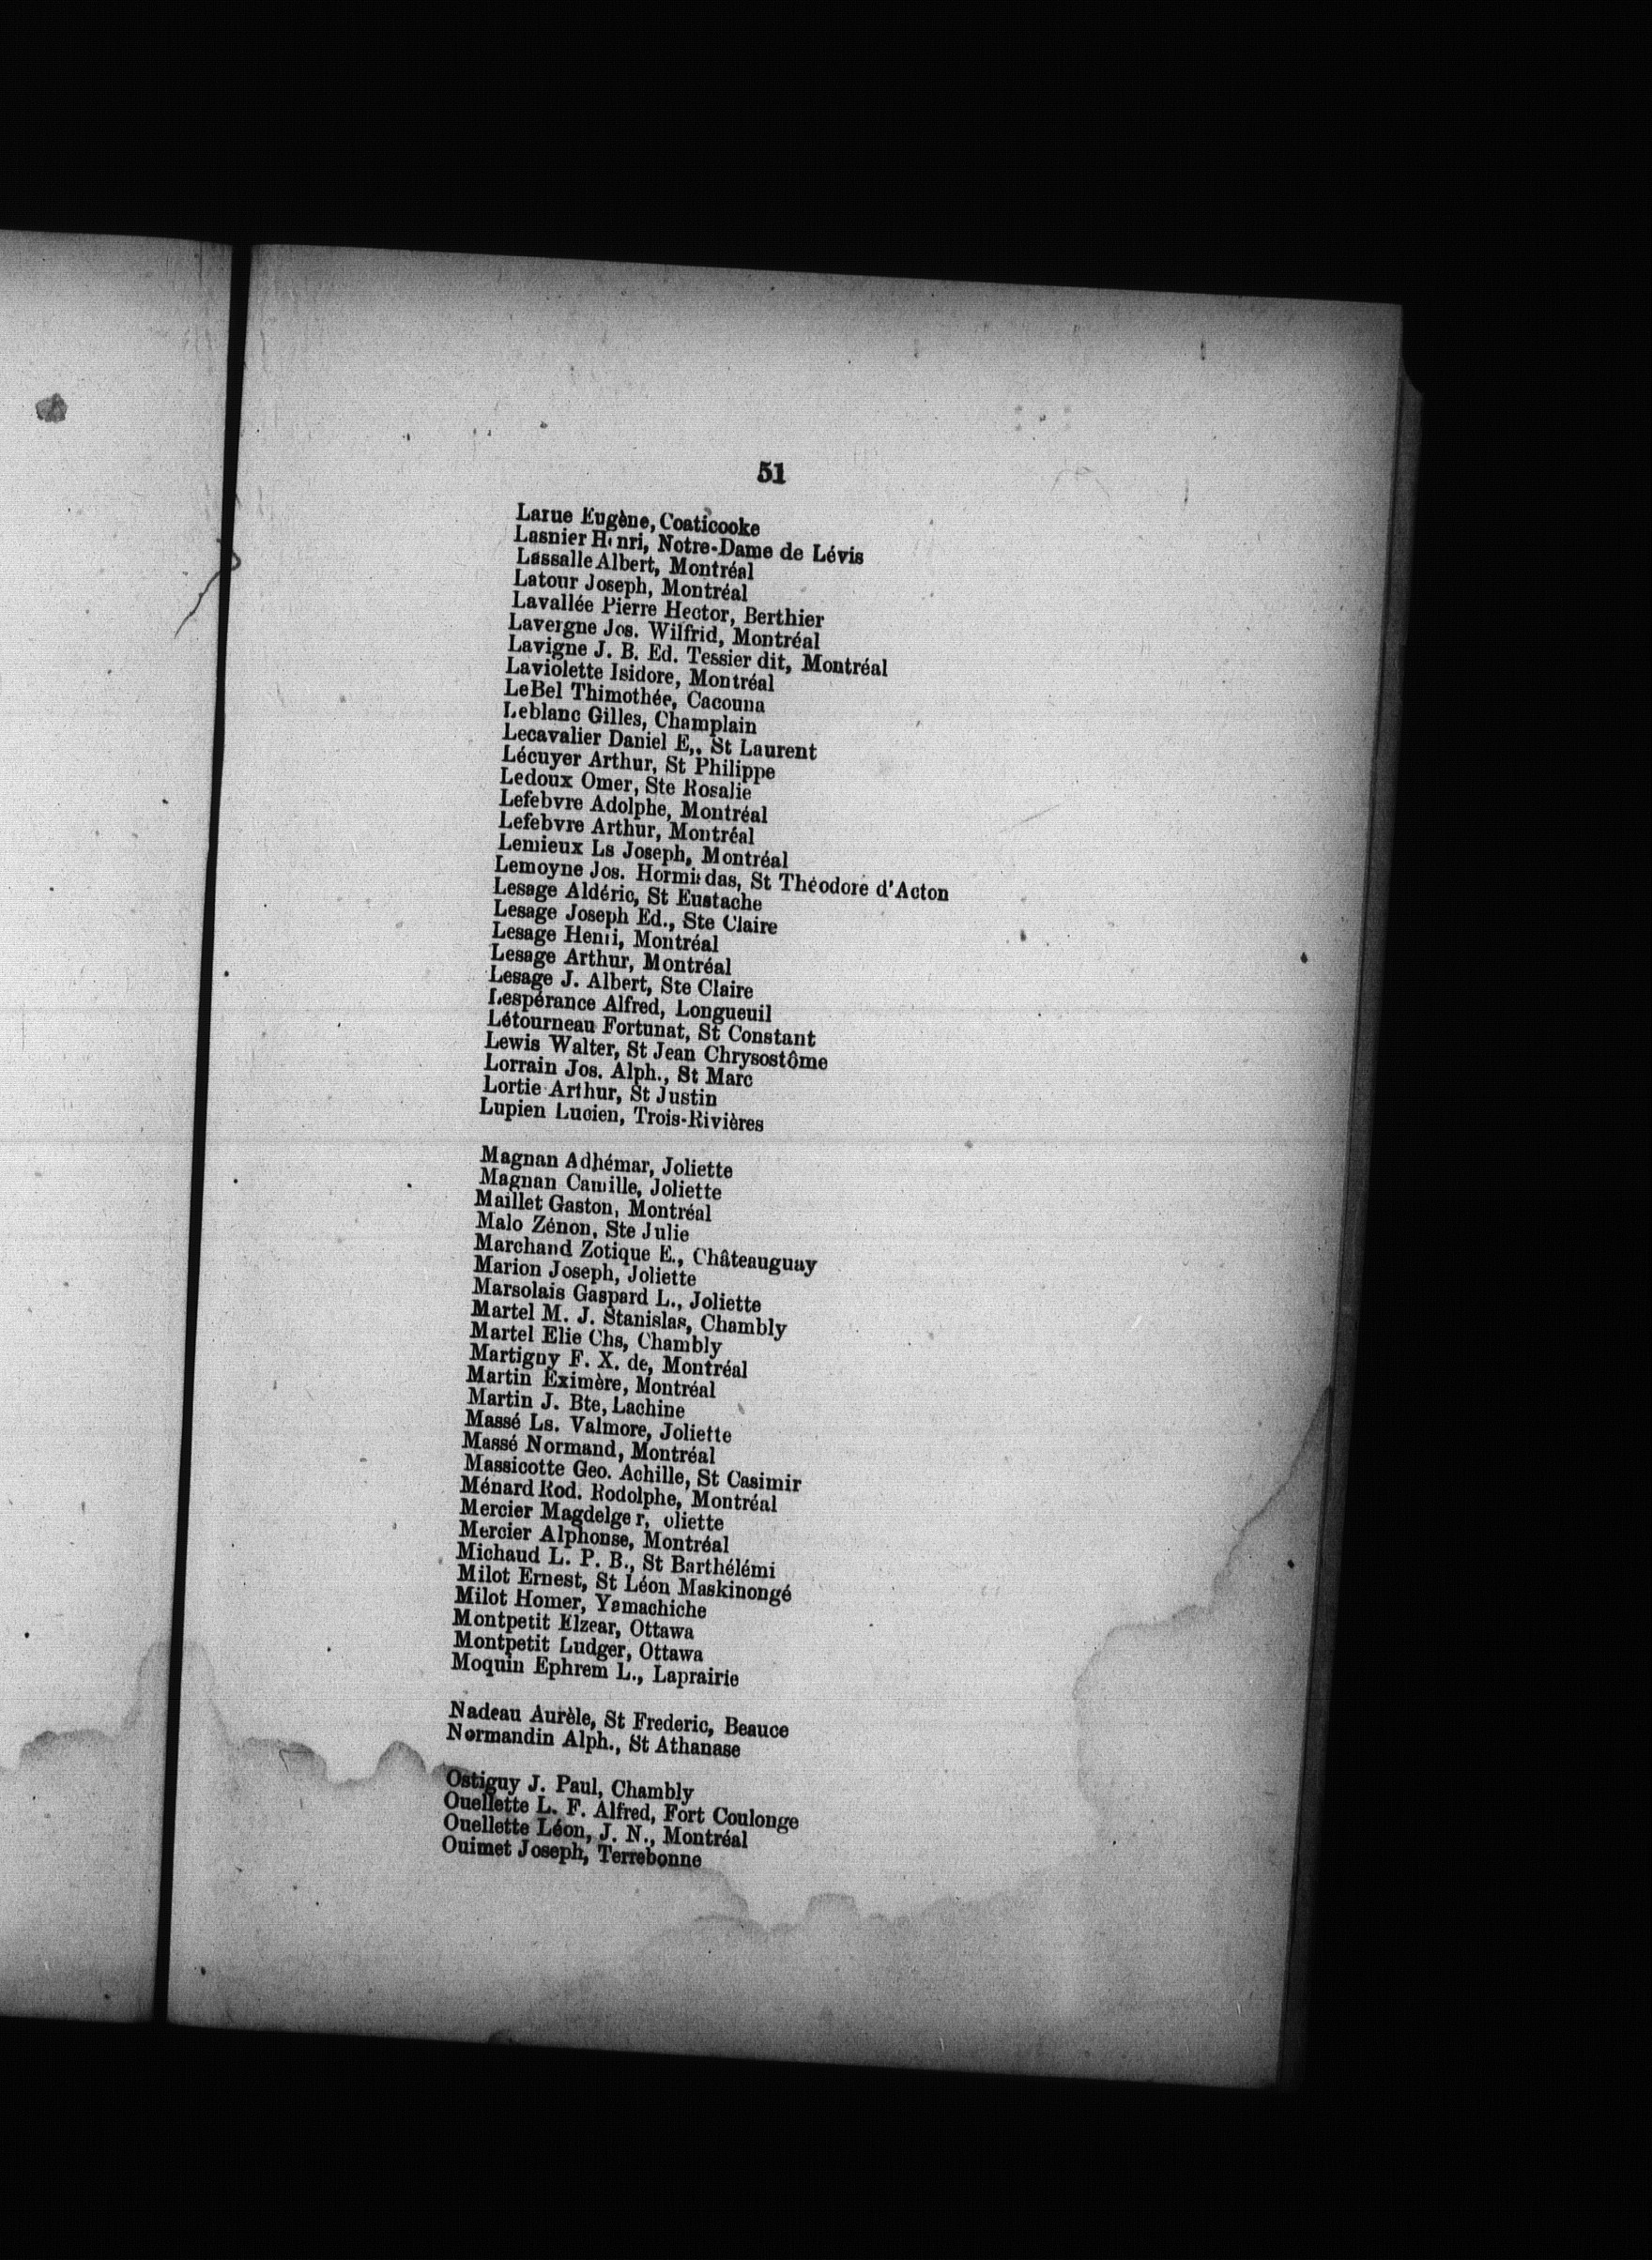 51
Larue Eugène, Coaticooke
Lasnier Henri, Notre-Dame de Lévis
Lassalle Albert, Montréal
Latour Joseph, Montréal
Lavallée Pierre Hector, Berthier
Lavergne Jos. Wilfrid, Montréal
Lavigne J. B. Ed. Tessier dit, Montréal
Laviolette Isidore, Montréal
LeBel Thimothée, Cacouna
Leblanc Gilles, Champlain
Lecavalier Daniel E,. St Laurent
Lécuyer Arthur, St Philippe
Ledoux Omer, Ste Rosalie
Lefebvre Adolphe, Montréal
Lefebvre Arthur, Montréal
Lemieux Ls Joseph, Montréal
Lemoyne Jos. Hormisdas, St Théodore d'Acton
Lesage Aldéric, St Eustache
Lesage Joseph Ed., Ste Claire
Lesage Henri, Montréal
Lesage Arthur, Montréal
Lesage J. Albert, Ste Claire
Lespérance Alfred, Longueuil
Létourneau Fortunat, St Constant
Lewis Walter, St Jean Chrysostôme
Lorrain Jos. Alph., St Marc
Lortie Arthur, St Justin
Lupien Lucien, Trois-Rivières
Magnan Adhémar, Joliette
Magnan Camille, Joliette
Maillet Gaston, Montréal
Malo Zénon, Ste Julie
Marchand Zotique E., Châteauguay
Marion Joseph, Joliette
Marsolais Gaspard L., Joliette
Martel M. J. Stanislas, Chambly
Martel Elie Chs, Chambly
Martigny F. X. de, Montréal
Martin Eximère, Montréal
Martin J. Bte, Lachine
Massé Ls. Valmore, Joliette
Massé Normand, Montréal
Massicotte Geo. Achille, St Casimir
Ménard Rod. Rodolphe, Montréal
Mercier Magdelger, Joliette
Mercier Alphonse, Montréal
Michaud L. P. B., St Barthélémi
Milot Ernest, St Léon Maskinongé
Milot Homer, Yamachiche
Montpetit Elzear, Ottawa
Montpetit Ludger, Ottawa
Moquin Ephrem L., Laprairie
Nadeau Aurèle, St Frederic, Beauce
Normandin Alph., St Athanase
Ostiguy J. Paul, Chambly
Ouellette L. F. Alfred, Fort Coulonge
Ouellette Léon, J. N., Montréal
Ouimet Joseph, Terrebonne